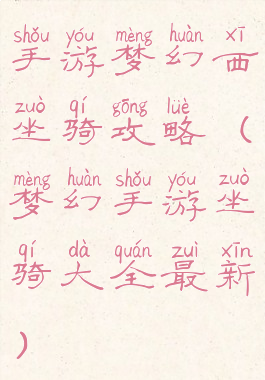 shǒu yóu mèng huàn xī
手游梦幻西
zuò qí gōng lüè
坐骑攻略（
mèng huàn shǒu yóu zuò
梦幻手游坐
qí dà quán zuì xīn
骑大全最新
）